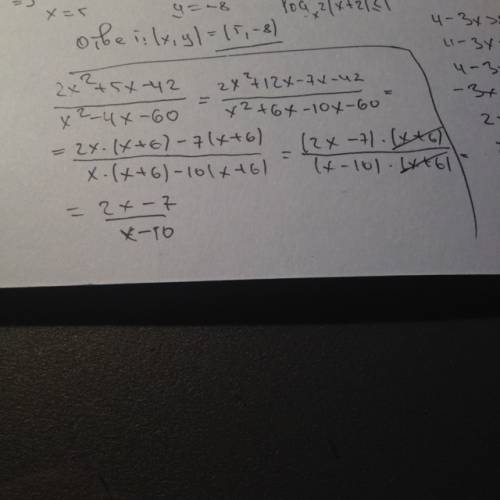 x=5 y=-8 log x²(x+2)≤1
ответ: (x,y)=(5,-8)
4-3x
4-3x
4-3
-3x
2
(2x²+5x-42)/(x²-4x-60) = (2x²+12x-7x-42)/(x²+6x-10x-60) =
= (2x·(x+6)-7(x+6))/(x·(x+6)-10(x+6)) = ((2x-7)·(x+6))/((x-10)·(x+6)) =
= (2x-7)/(x-10)